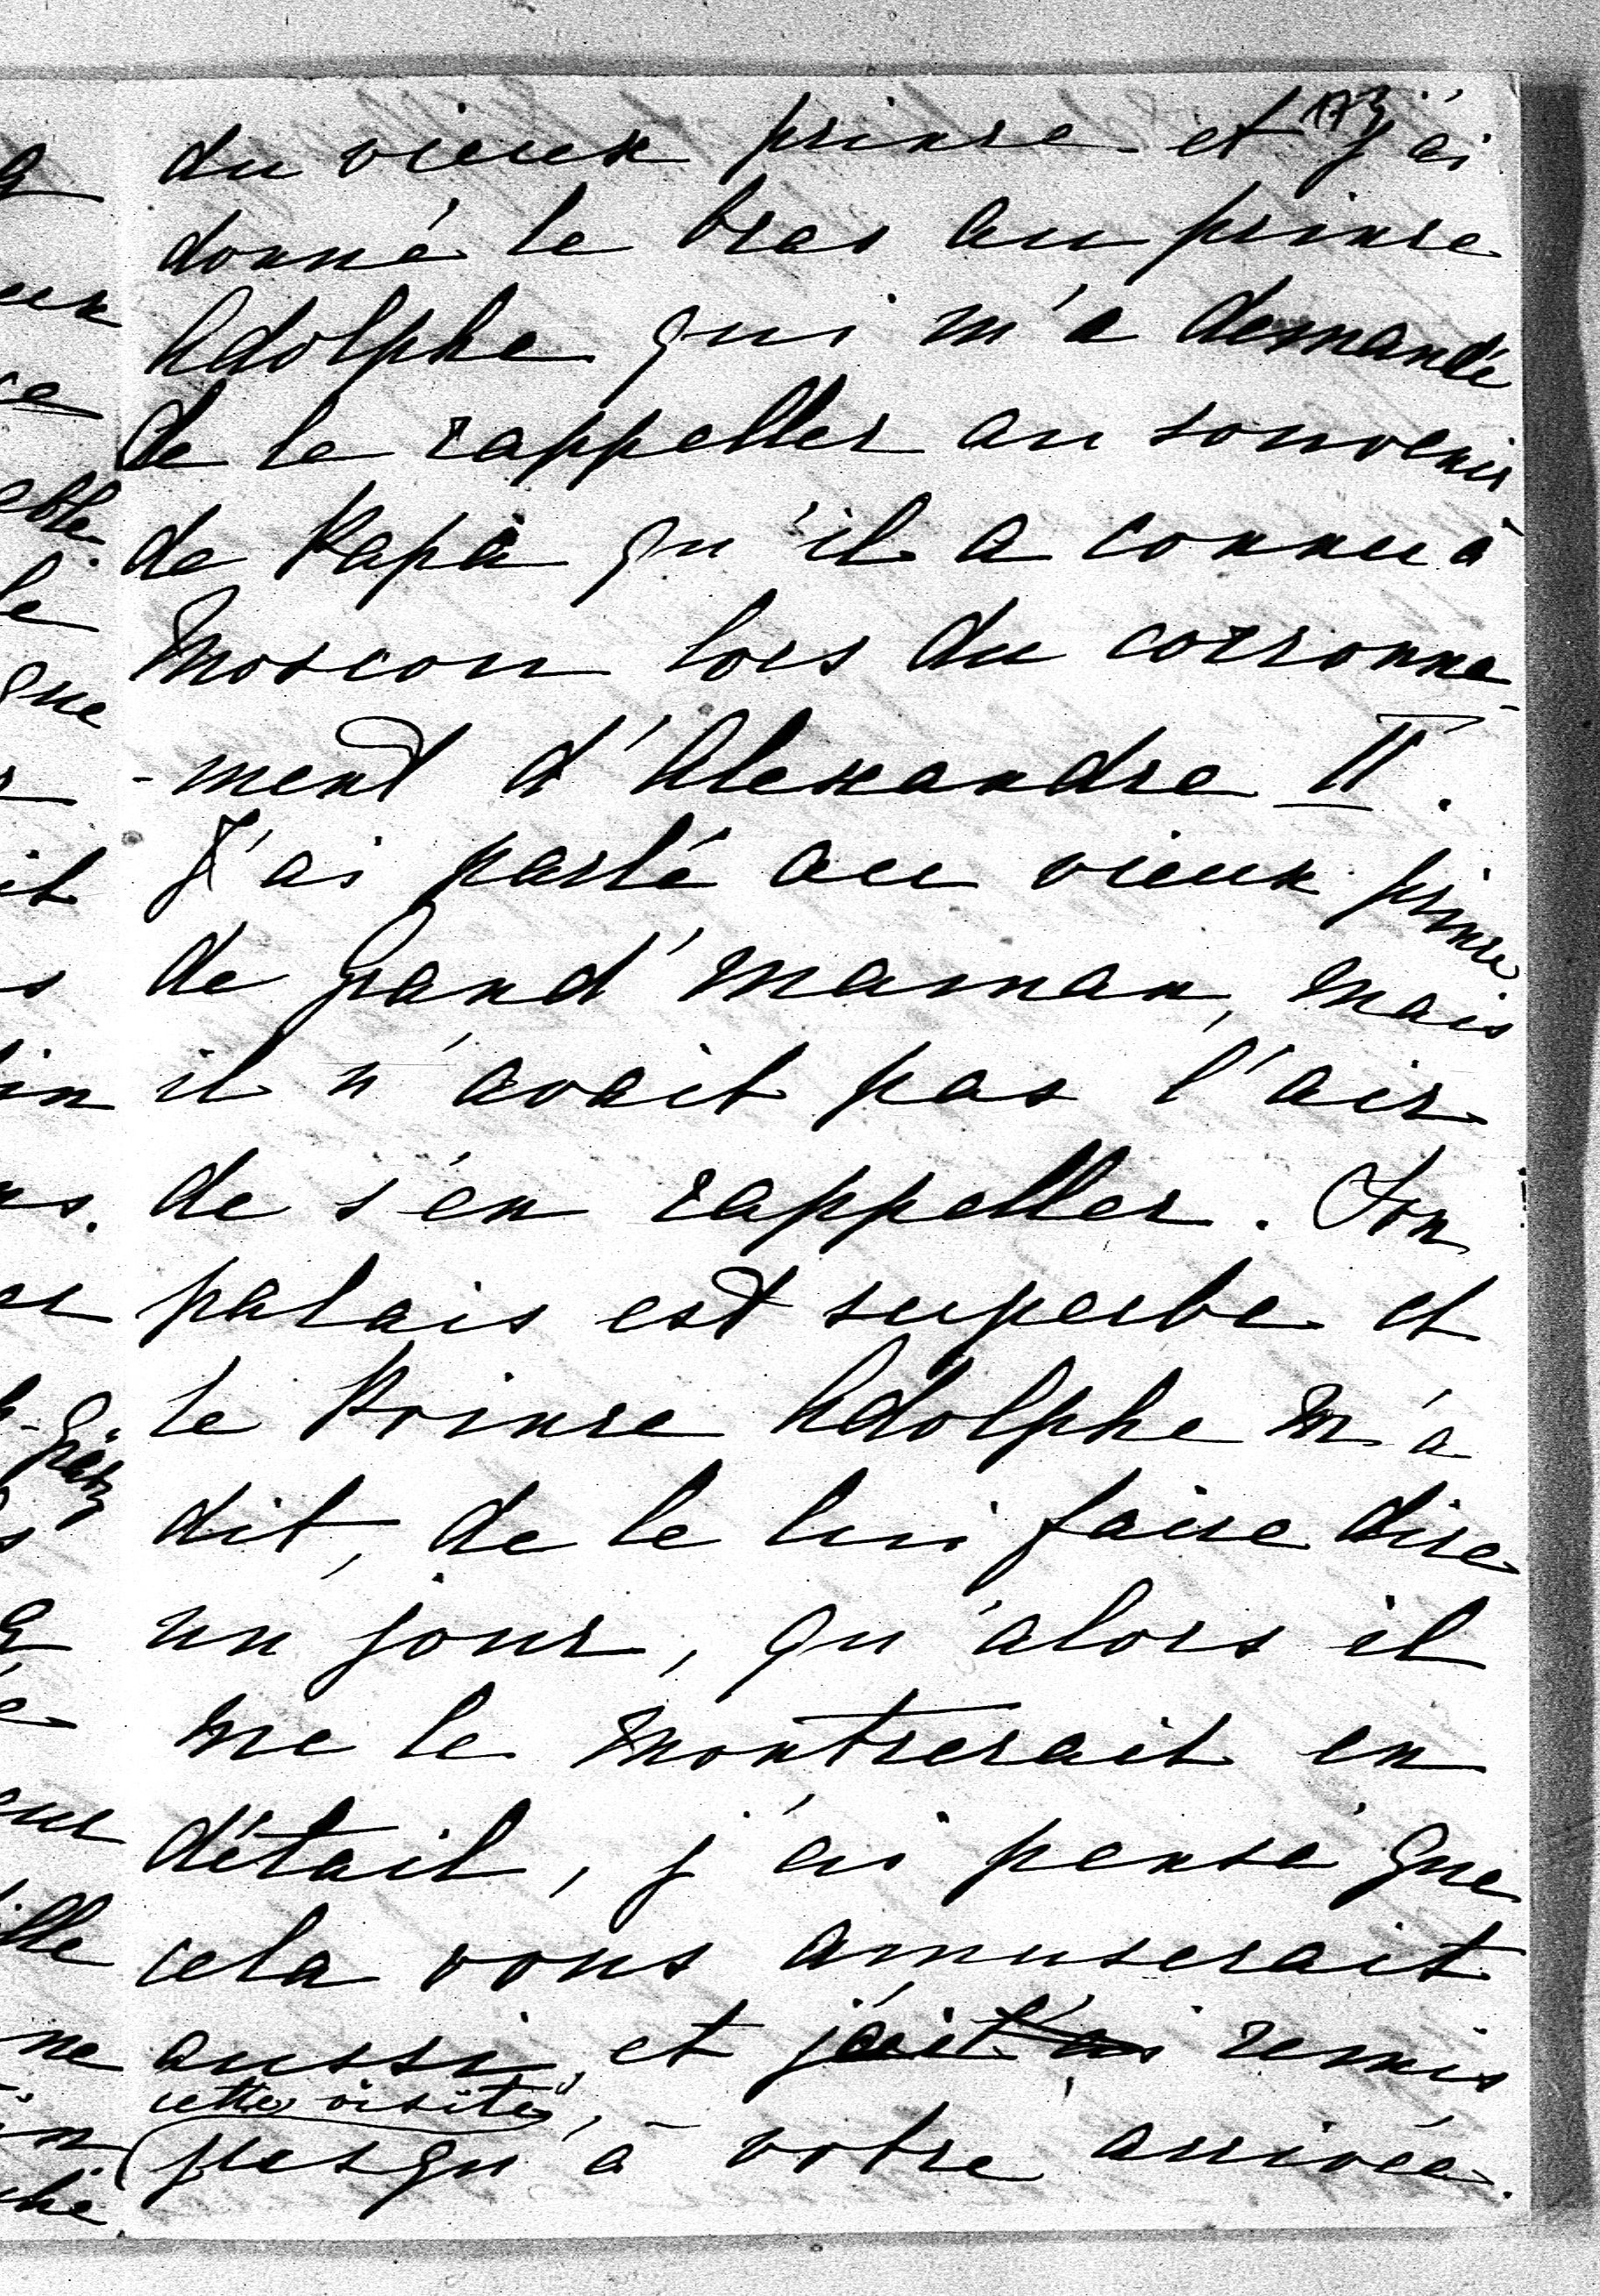 173
du vieux prince et j'ai
donné le bras au prince
Adolphe qui m'a demandé
de le rappeller au souvenir
de Papa qu'il a connu à
Moscou lors du corronne-
-ment d'Alexandre II.
J'ai parlé au vieux prince
de Grand'maman, mais
il n'avait pas l'air
de s'en rappeller. Son
palais est superbe et
le Prince Adolphe m'a
dit, de le lui faire dire
un jour, qu'alors il
me le montrerait en
détail, j'ai pensé que
cela vous amuserait
aussi, et j'ai remis
cette visite,
jusqu'à votre arrivée.